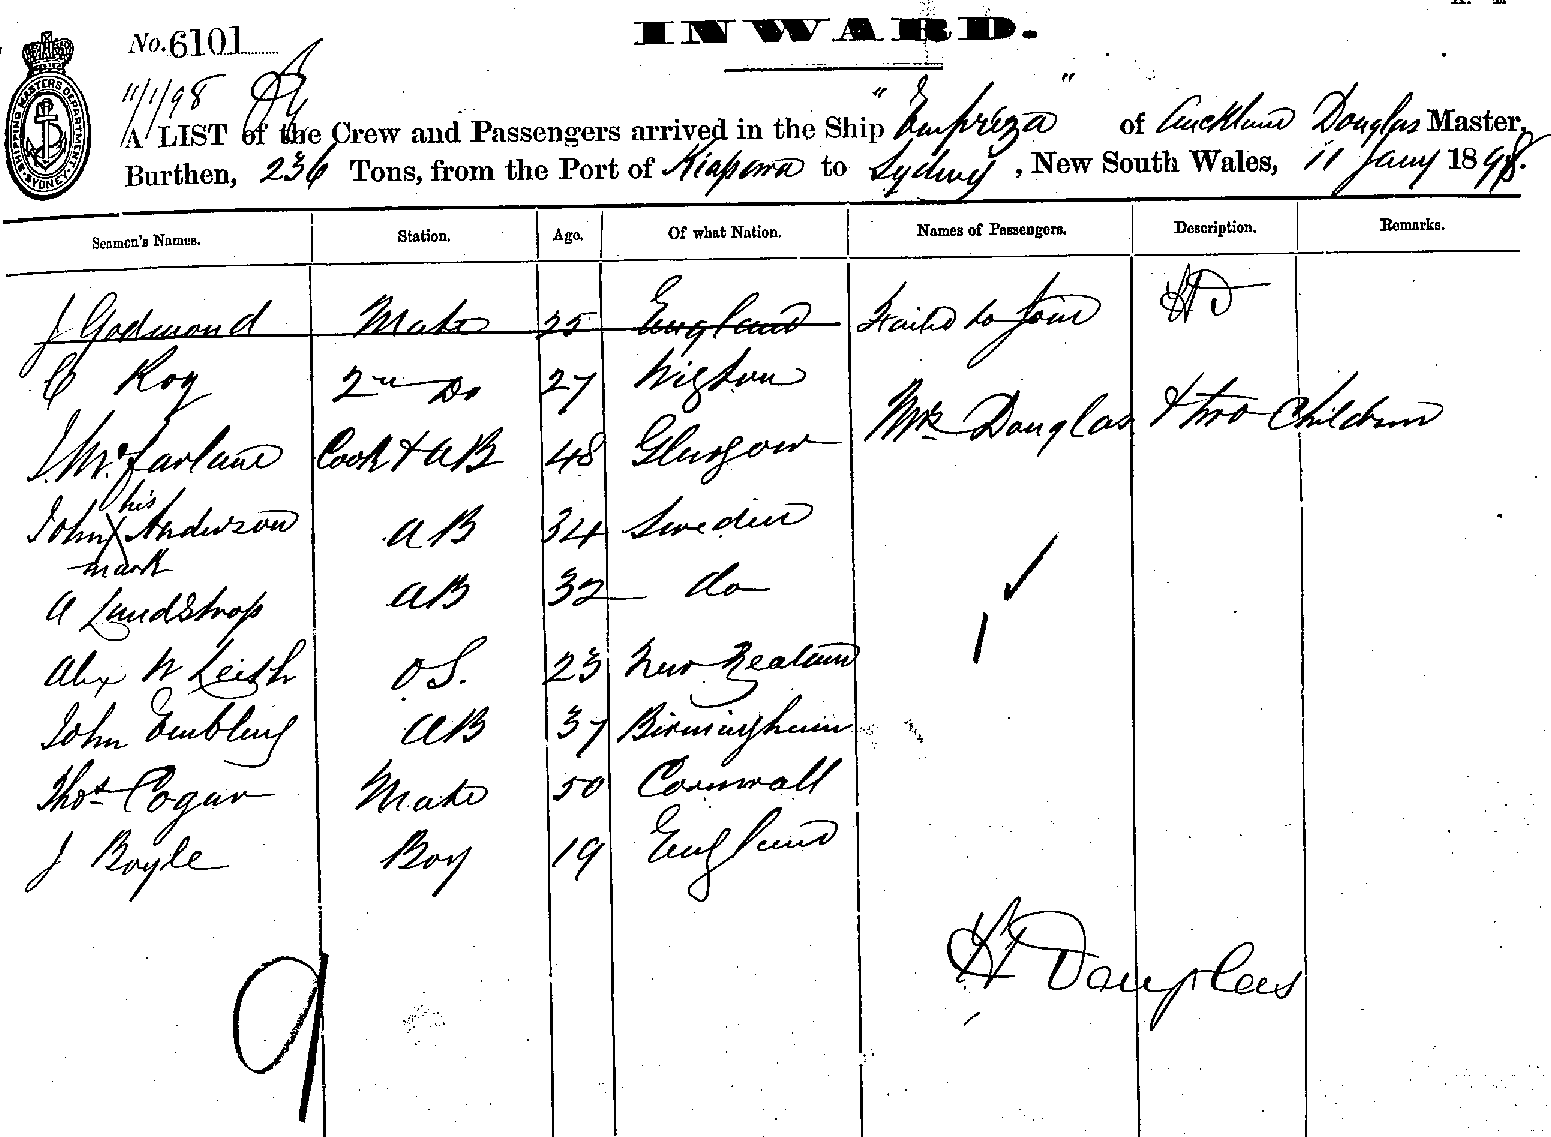 INWARD.
No. 6101
11/1/98
SHIPPING MASTERS DEPARTMENT SYDNEY
A LIST of the Crew and Passengers arrived in the Ship "Empreza" of Auckland Douglas Master,
Burthen, 236 Tons, from the Port of to Sydney, New South Wales, 11 Jany 1898.
Seamen's Names. Station. Age. Of what Nation. Names of Passengers. Description. Remarks.
J Godmond Mate 25 England Failed to Join HD
C Roy 2nd Do 27 Wigton
Mrs Douglas & two Children
J. McFarlane Cook & AB 48 Glasgow
his
John X Anderson AB 34 Sweden
mark
A Landstrop AB 32 do
Alex W Leith O S. 23 New Zealand
John Embling AB 37 Birmingham
Thos Cogar Mate 50 Cornwall
J Boyle Boy 19 England
H Douglas
9